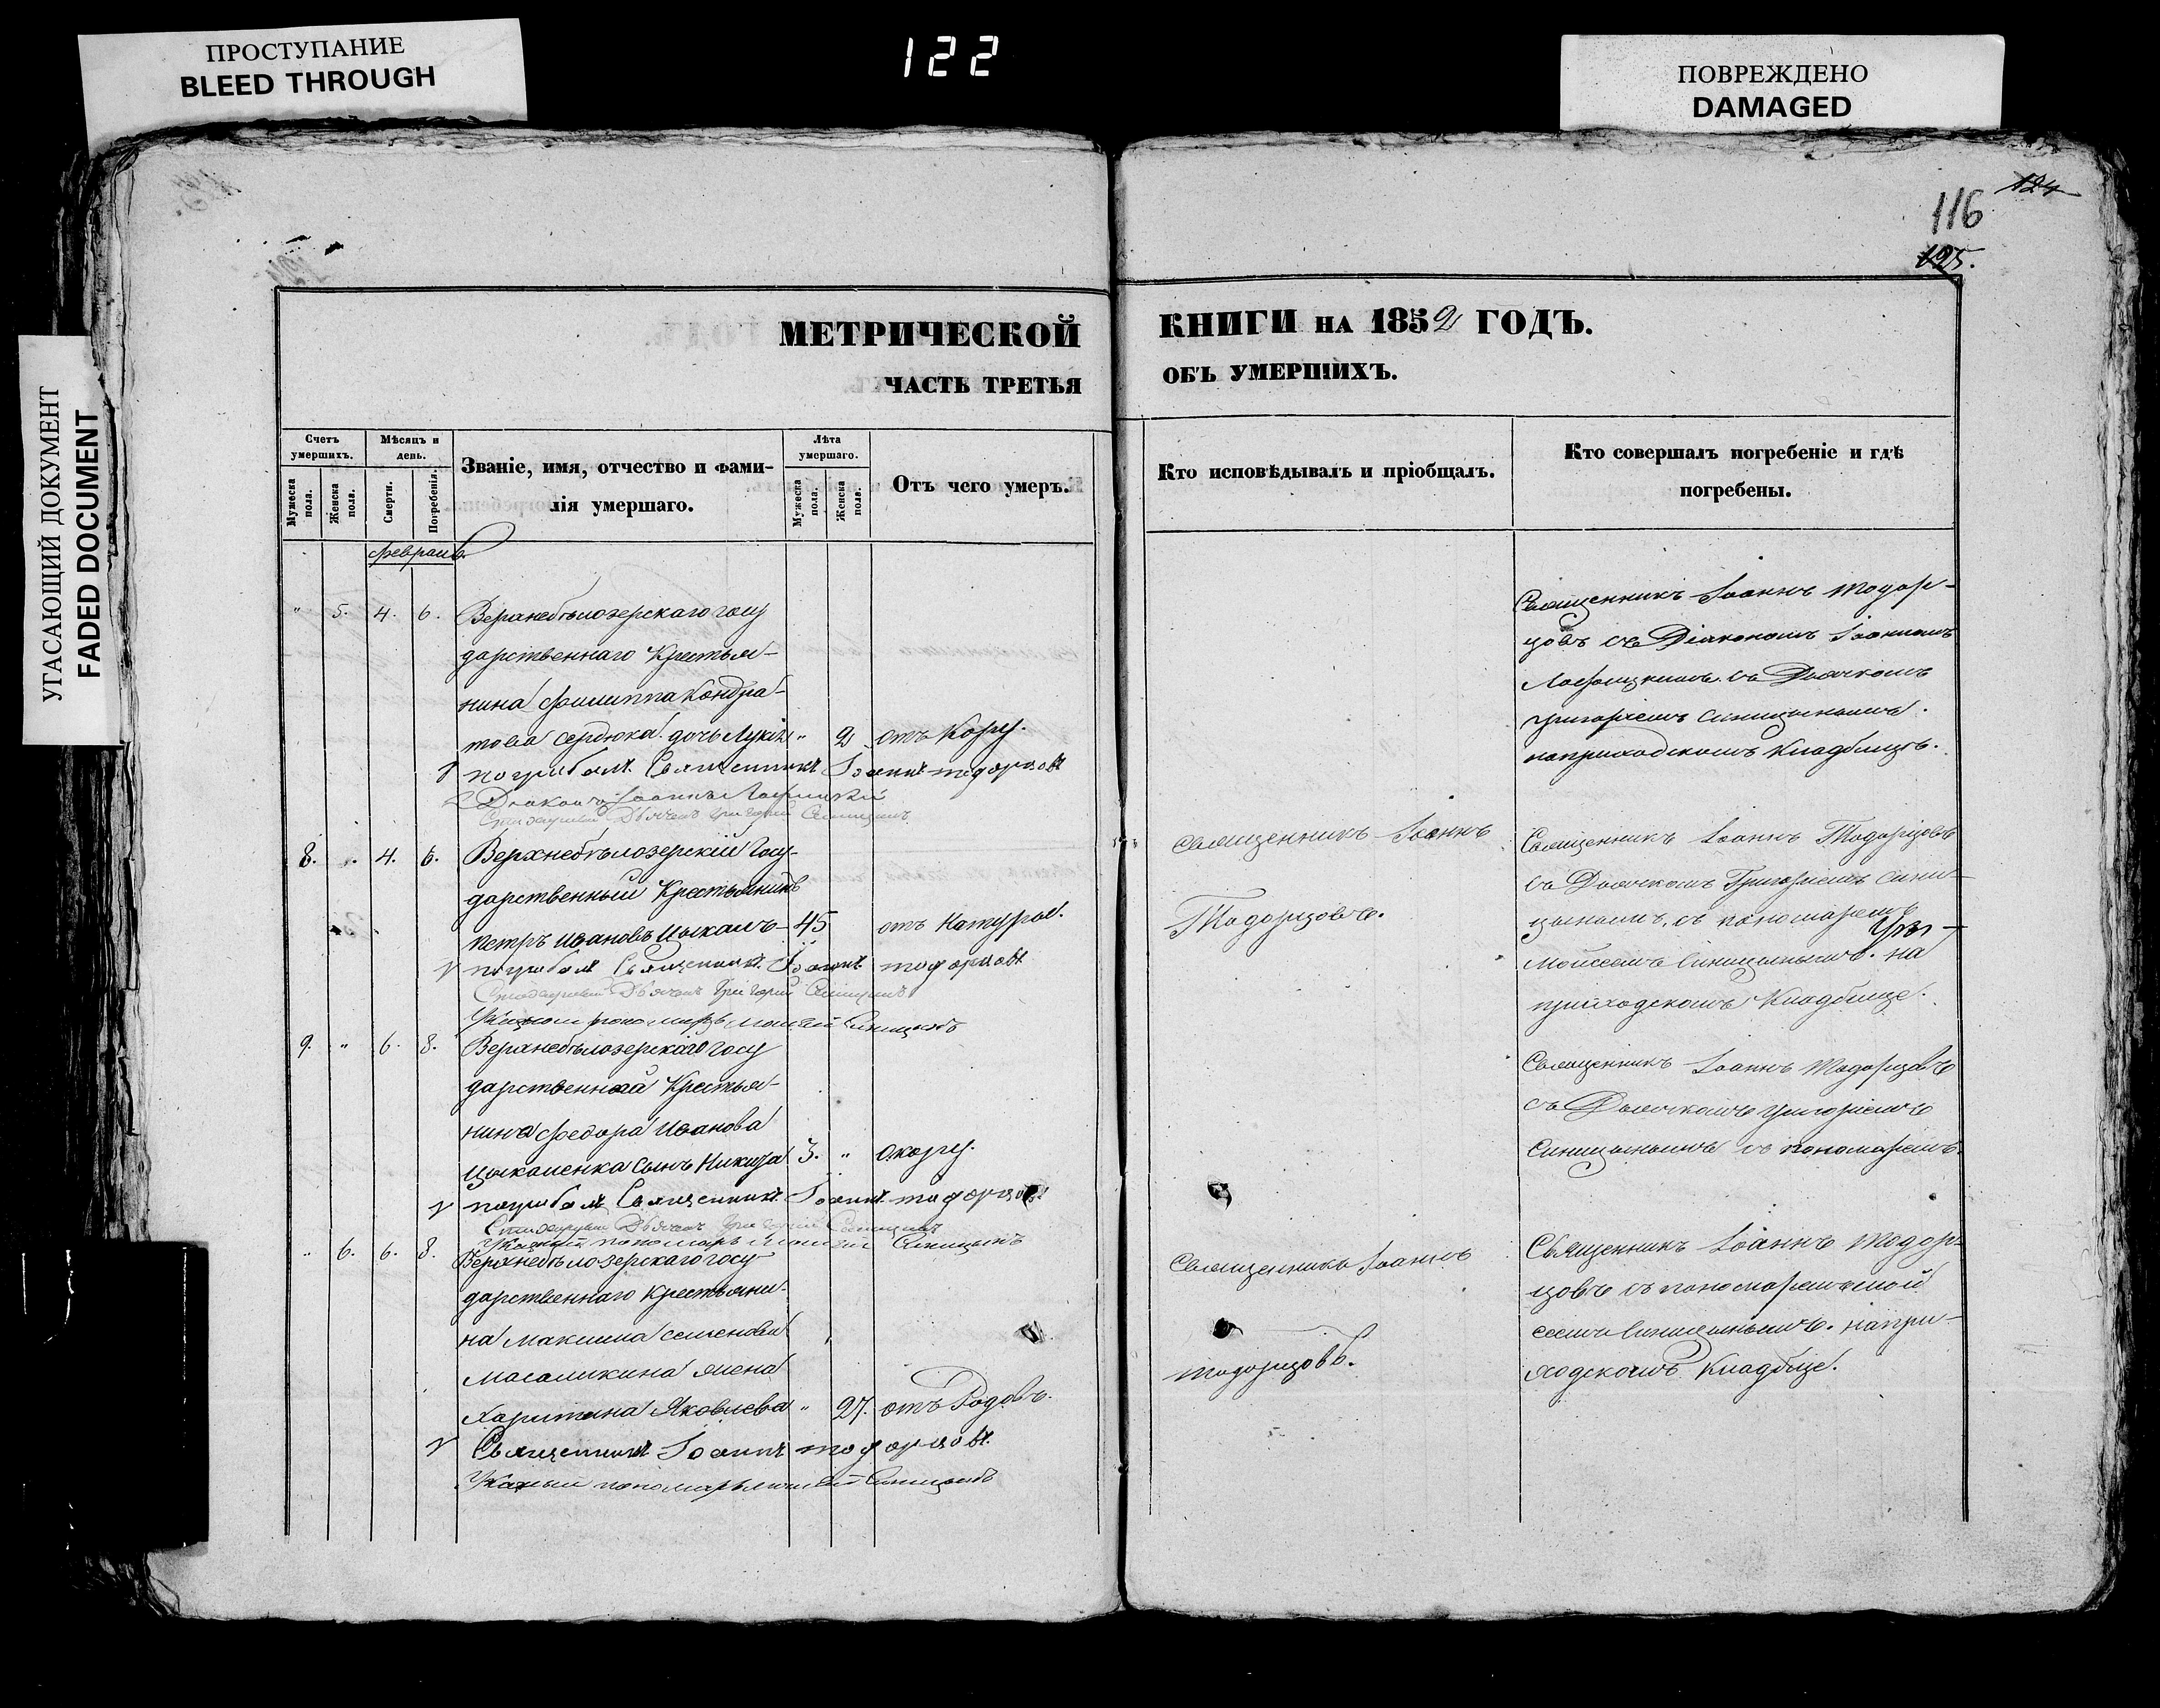 ПРОСТУПАНИЕ
BLEED THROUGH
122
ПОВРЕЖДЕНО
DAMAGED
УГАСАЮЩИЙ ДОКУМЕНТ
FADED DOCUMENT
124
116
125.
МЕТРИЧЕСКОЙ
ЧАСТЬ ТРЕТЬЯ
КНИГИ НА 1852 ГОДЪ.
ОБЪ УМЕРШИХЪ.
Счетъ умершихъ.
Мужеска пола.
Женска пола.
Мѣсяцъ и день.
Смерти.
Погребенія.
Званіе, имя, отчество и фами-
лія умершаго.
Лѣта умершаго.
Мужеска пола.
Женска пола.
Отъ чего умеръ.
Кто исповѣдывалъ и пріобщалъ.
Кто совершалъ погребеніе и гдѣ
погребены.
Февраль
" 5. 4. 6. Верхнебѣлозерскаго госу
дарственнаго Крестья-
нина Филиппа Кондра-
това Сердюка дочь " 2 отъ Кору.
погребалъ Священникъ Іоаннъ Тодорцовъ
Діаконъ Іоаннъ
Стихарный Дьячекъ Григорій Синицынъ
Священникъ Іоаннъ Тодор-
цовъ съ Діакономъ Іоанномъ
съ Дьячкомъ
Григоріемъ Синицынымъ.
на приходскомъ Кладбищѣ.
8. " 4. 6. Верхнебѣлозерскій Госу-
дарственный Крестьянинъ
Петръ Ивановъ Цыкалъ 45 отъ Натуры.
погребалъ Священникъ Іоаннъ Тодорцовъ
Стихарный Дьячекъ Григорій Синицынъ
Указный пономарь Моисей Синицынъ
Священникъ Іоаннъ
Тодорцовъ.
Священникъ Іоаннъ Тодорцовъ
съ Дьячкомъ Григоріемъ Сини-
цынымъ, съ пономаремъ
Моисеемъ Синицынымъ. на
приходскомъ Кладбище.
9. " 6. 8. Верхнебѣлозерскаго госу
дарственнай Крестья-
нина Федора Иванова
Цыкаленка сынъ Никита 3. " Окору.
погребалъ Священникъ Іоаннъ Тодорцовъ
Стихарный Дьячекъ Григорій Синицынъ
Указный пономарь Моисей Синицынъ
Священникъ Іоаннъ Тодорцовъ
съ Дьячкомъ Григоріемъ
Синицынымъ съ пономаремъ
" 6. 6. 8. Верхнебѣлозерскаго госу
дарственнаго Крестьяни-
на Максима Семенова
Масаликина жена
Харитина Яковлева " 27. отъ Родовъ.
Священникъ Іоаннъ Тодорцовъ.
Указный пономарь Моисей Синицынъ
Священникъ Іоаннъ
Тодорцовъ.
Священникъ Іоаннъ Тодор-
цовъ съ пономаремъ Мой
сеемъ Синицынымъ. на при-
ходскомъ Кладбище.